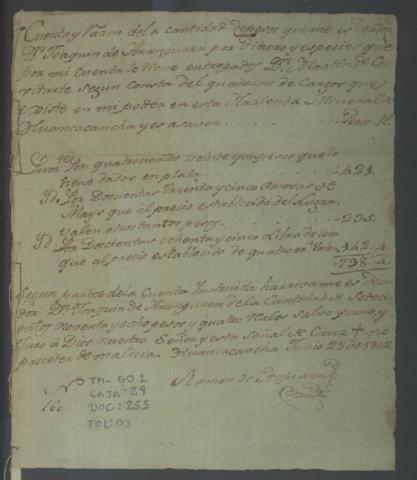 Cuenta y Razon de la cantidad de pesos que me es Deudor
Dn. Joaquin de Aranguren por Dinero y especies que
por mi cuenta le tiene entregados Dn. Martin de
segun consta del quaderno de Cargos que
existe en mi poder en esta Hazienda Mineral de
Huancacancha y es a saver. Pesos Rs.
Primte. Por quatrocientos veinte y un pesos que le
tiene dados en plata .421.
Yd. Por Dorcientas treinta y cinco arrovas de
Mays que al precio establecido del Lugar,
valen otros tantos pesos .235.
Yd. Por Dorcientas ochenta y cinco Libras de coca
que al precio establecido de quatro rs. Valen .142.4.
.798.4.
Segun parece de la Cuenta Ystuada haviva me es Deu-
dor Dn. Joaquin de Aranguren de la Cantidad de Setecie-
ntos Noventa y ocho pesos y quatro Reales Salvo yerro, y
Juro à Dios Nuestro Señor y esta Señal de Cruz + no
proceder de malicia. Huancacancha Junio 22 de 1802.
Ramon de
No
160
TH- GO 1
CAJA: 29
DOC: 255
FOL: 03